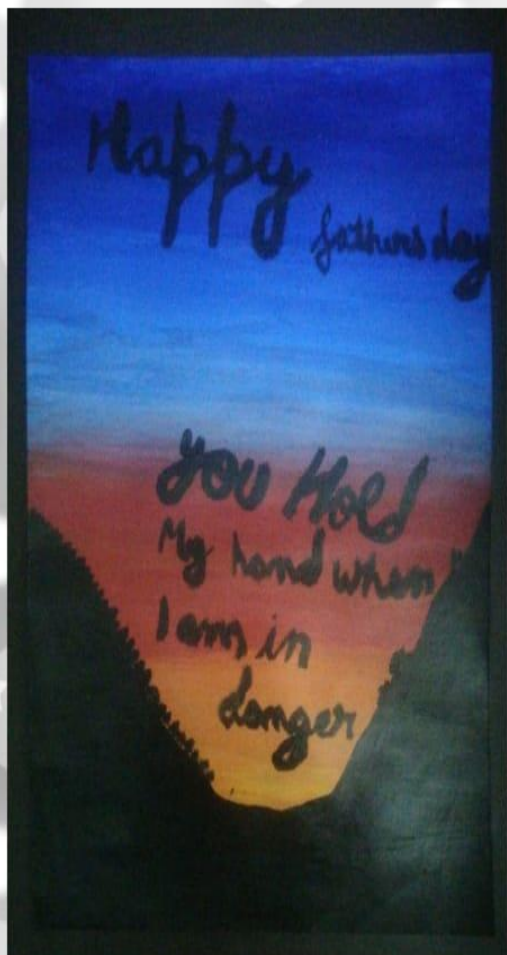 Happy
fathers day
you Hold
My hand when
I am in
danger